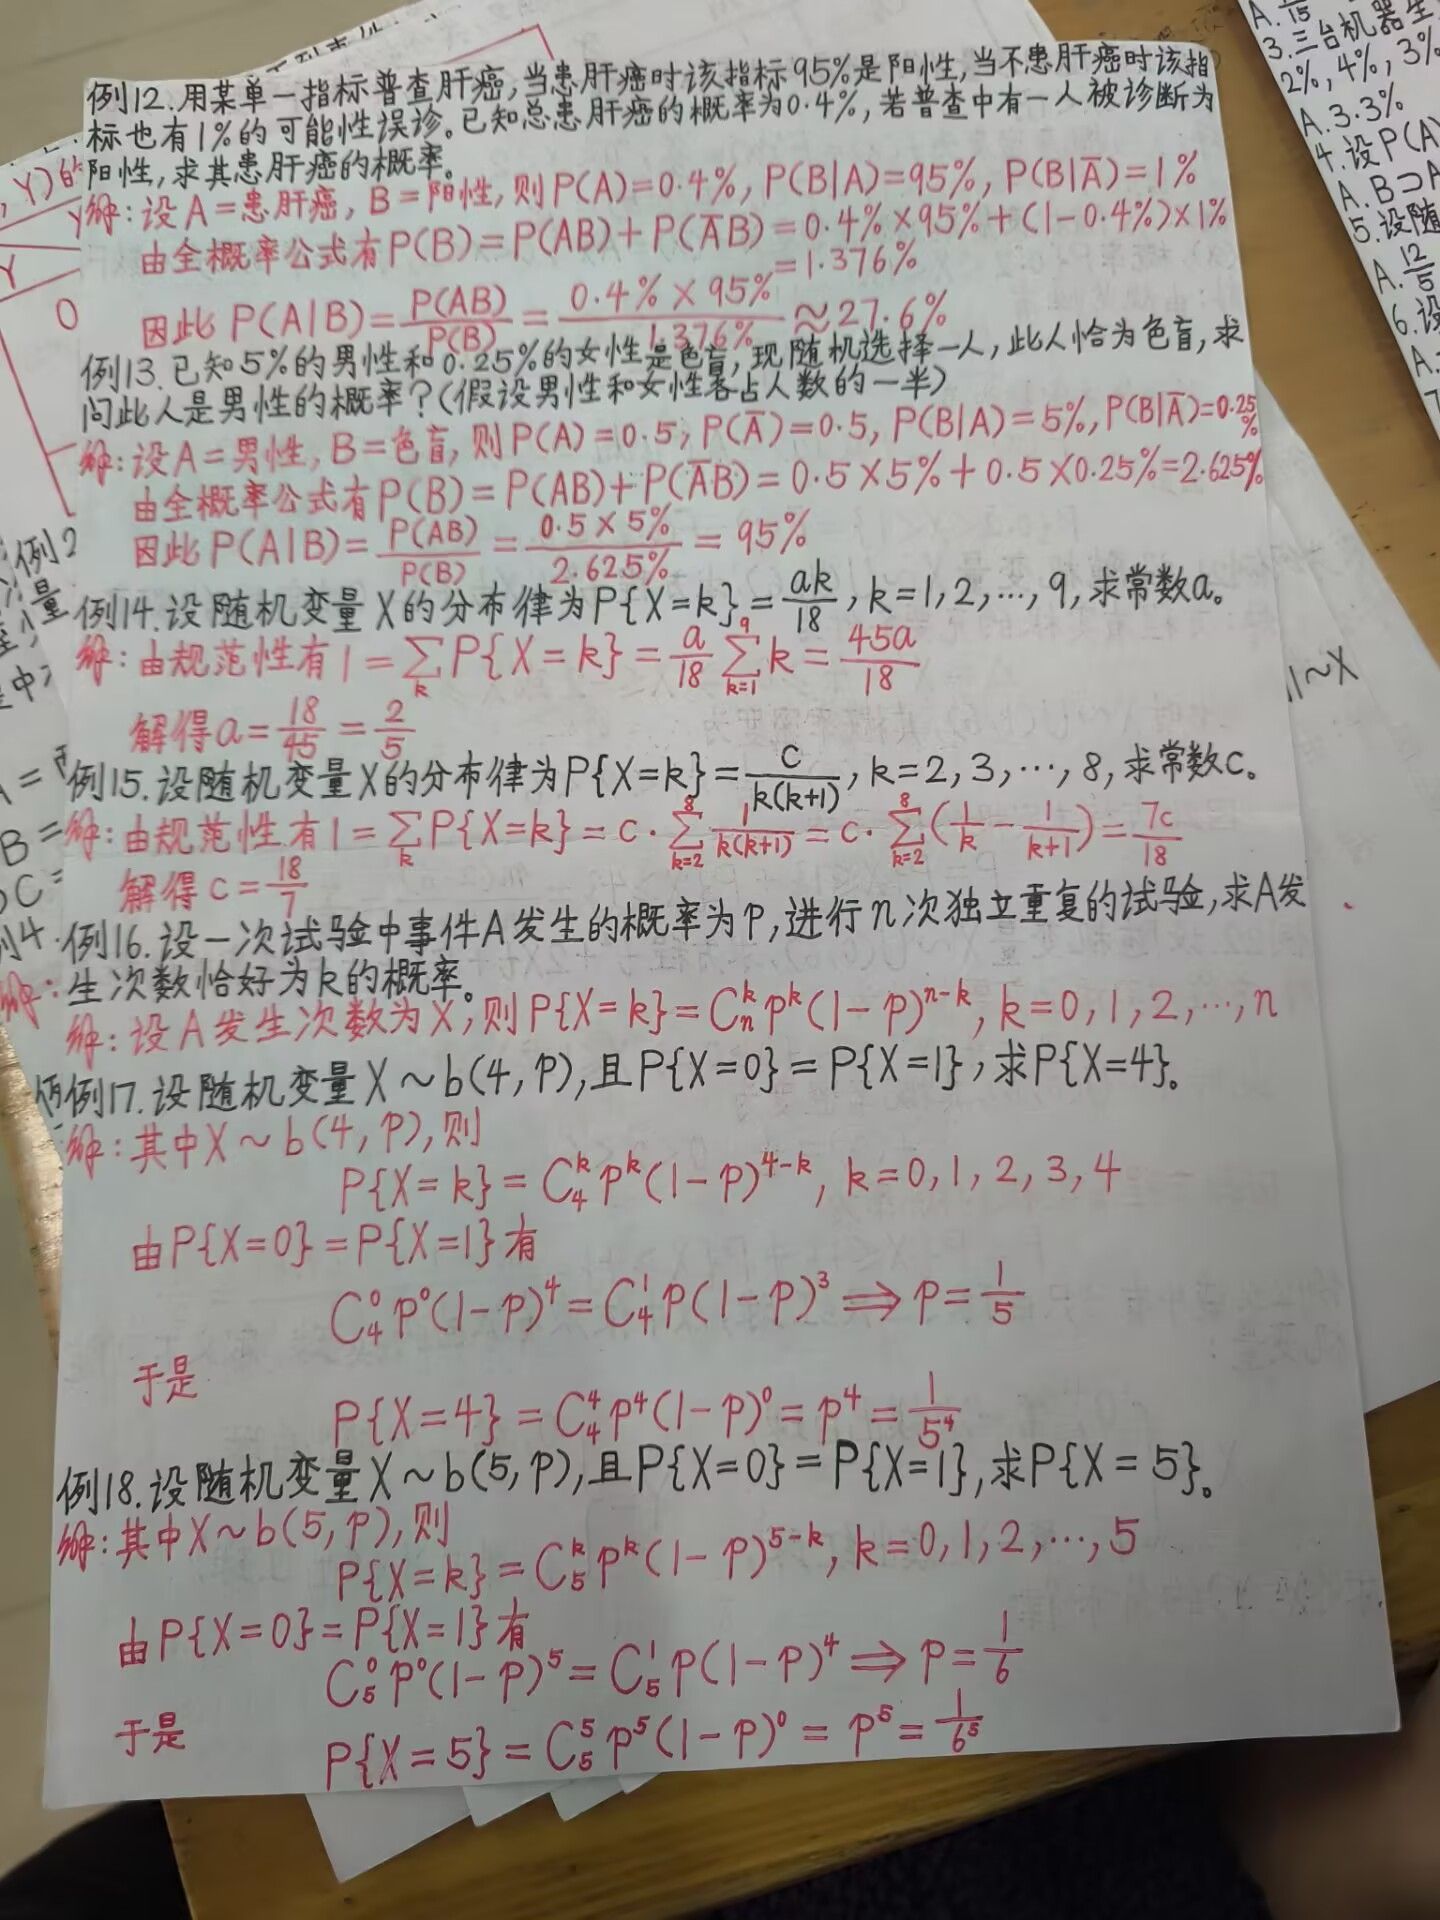 例12.用某单一指标普查肝癌,当患肝癌时该指标95%是阳性,当不患肝癌时该指
标也有1%的可能性误诊。已知总患肝癌的概率为0.4%,若普查中有一人被诊断为
阳性,求其患肝癌的概率。
解:设A=患肝癌,B=阳性,则P(A)=0.4%,P(B|A)=95%,P(B|Ā)=1%
由全概率公式有P(B)=P(AB)+P(ĀB)=0.4%×95%+(1-0.4%)×1%
=1.376%
因此P(A|B)=P(AB)/P(B)=0.4%×95%/1.376%≈27.6%
例13.已知5%的男性和0.25%的女性是色盲,现随机选择一人,此人恰为色盲,求
问此人是男性的概率?(假设男性和女性各占人数的一半)
解:设A=男性,B=色盲,则P(A)=0.5,P(Ā)=0.5,P(B|A)=5%,P(B|Ā)=0.25%
由全概率公式有P(B)=P(AB)+P(ĀB)=0.5×5%+0.5×0.25%=2.625%
因此P(A|B)=P(AB)/P(B)=0.5×5%/2.625%=95%
例14.设随机变量X的分布律为P{X=k}=ak/18,k=1,2,…,9,求常数a。
解:由规范性有1=∑_k P{X=k}=a/18 ∑_{k=1}^{9} k=45a/18
解得a=18/45=2/5
例15.设随机变量X的分布律为P{X=k}=c/k(k+1),k=2,3,…,8,求常数c。
解:由规范性有1=∑_k P{X=k}=c·∑_{k=2}^{8} 1/k(k+1)=c·∑_{k=2}^{8}(1/k-1/k+1)=7c/18
解得c=18/7
例16.设一次试验中事件A发生的概率为p,进行n次独立重复的试验,求A发
生次数恰好为k的概率。
解:设A发生次数为X,则P{X=k}=C_n^k p^k(1-p)^{n-k},k=0,1,2,…,n
例17.设随机变量X~b(4,p),且P{X=0}=P{X=1},求P{X=4}。
解:其中X~b(4,p),则
P{X=k}=C_4^k p^k(1-p)^{4-k},k=0,1,2,3,4
由P{X=0}=P{X=1}有
C_4^0 p^0(1-p)^4=C_4^1 p(1-p)^3⇒p=1/5
于是
P{X=4}=C_4^4 p^4(1-p)^0=p^4=1/5^4
例18.设随机变量X~b(5,p),且P{X=0}=P{X=1},求P{X=5}。
解:其中X~b(5,p),则
P{X=k}=C_5^k p^k(1-p)^{5-k},k=0,1,2,…,5
由P{X=0}=P{X=1}有
C_5^0 p^0(1-p)^5=C_5^1 p(1-p)^4⇒p=1/6
于是
P{X=5}=C_5^5 p^5(1-p)^0=p^5=1/6^5
A.
/15
3.三台机器生
2%,4%,3%
A.3.3%
4.设P(A)
A.B⊃A
5.设随
A.12/5
6.设
A.
~X
,Y)的
Y
Y
0
例2
量
A=
B=
C=
解: